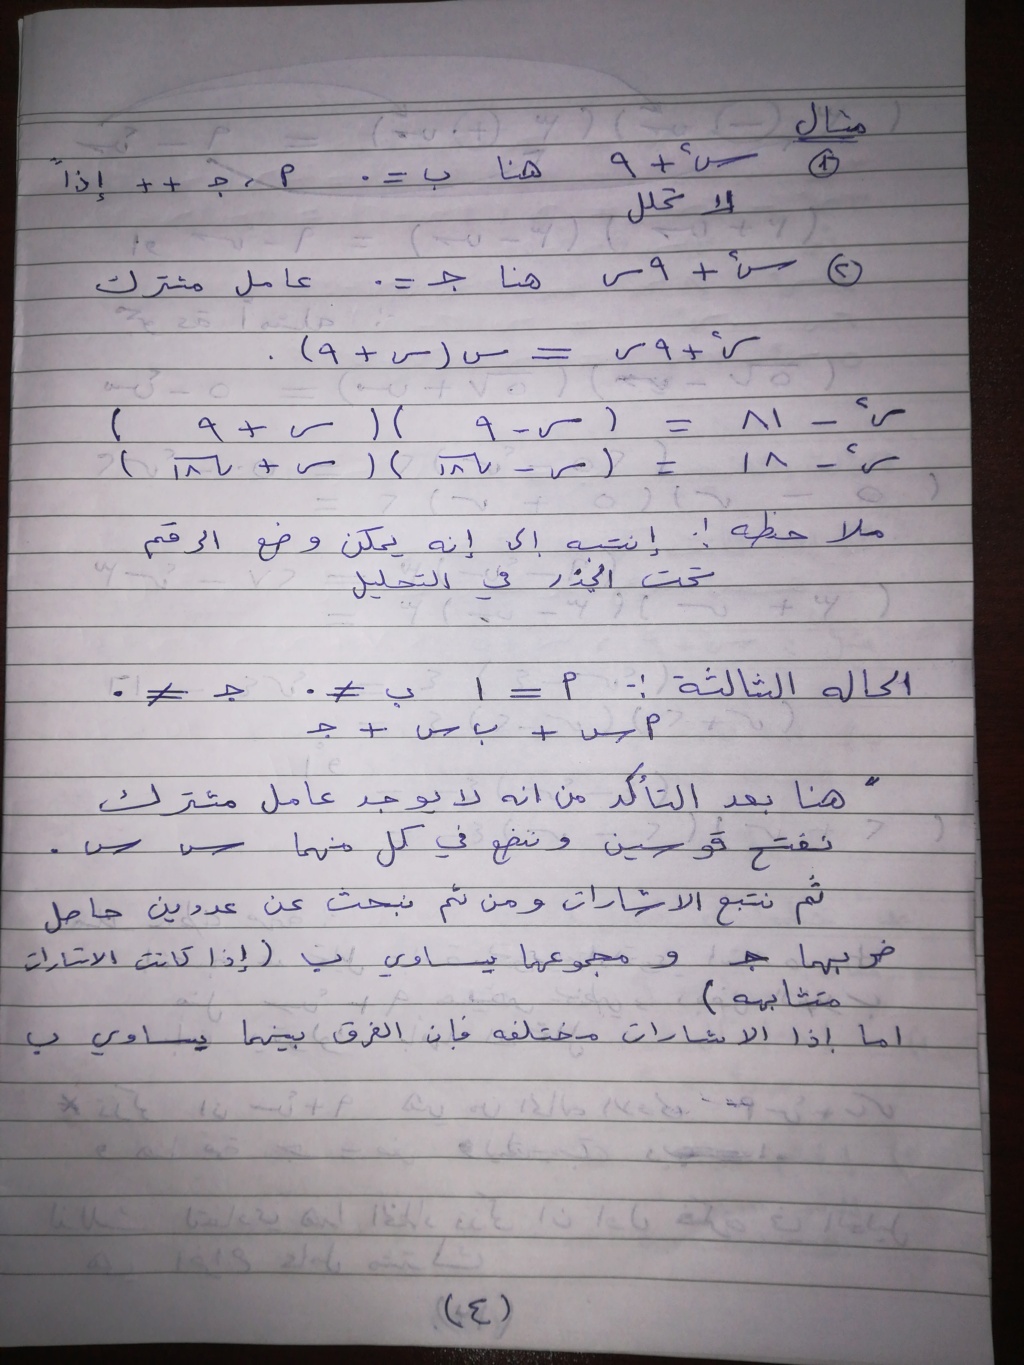 مثال
① س² + ٩ هنا ب = ٠ ، ٩ ، جـ + + إذاً
لا تحلل
② س² + ٩س هنا جـ = ٠ عامل مشترك
س² + ٩س = س(س + ٩) .
س² - ٨١ = (س - ٩)(س + ٩)
س² - ١٨ = (س - √١٨)(س + √١٨)
ملاحظه :! إنتبه إلى إنه يمكن وضع الرقم
تحت الجذر في التحليل
الحاله الثالثة :- ٩ = ١ ب ≠ ٠ جـ ≠ ٠
٩س + ب س + جـ
" هنا بعد التأكد من انه لا يوجد عامل مشترك
نفتح قوسين ونضع في كل منهما س س .
ثم نتبع الاشارات ومن ثم نبحث عن عددين حاصل
ضربهما جـ و مجموعهما يساوي ب (إذا كانت الاشارات
متشابهه)
اما إذا الاشارات مختلفه فإن الفرق بينهما يساوي ب
(٤)